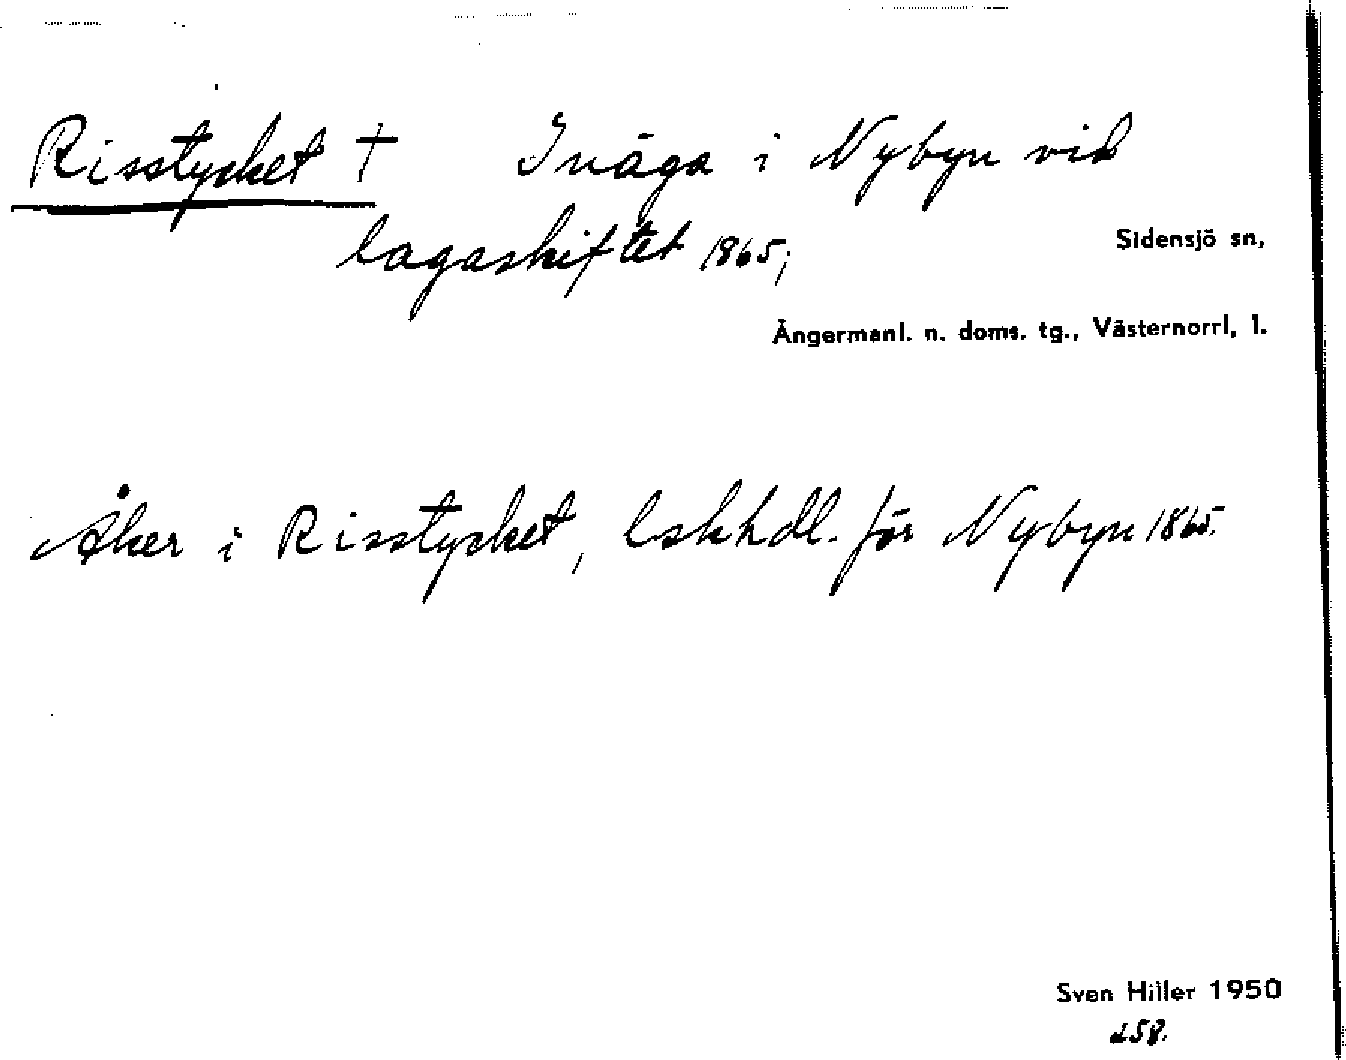 Risstycket † Inäga i Nybyn vid
lagaskiftet 1865;
Sidensjö sn,
Ångermanl. n. doms. tg., Västernorrl, l.
Åker i Risstycket, lskhdl. för Nybyn 1865.
Sven Hiller 1950
258.